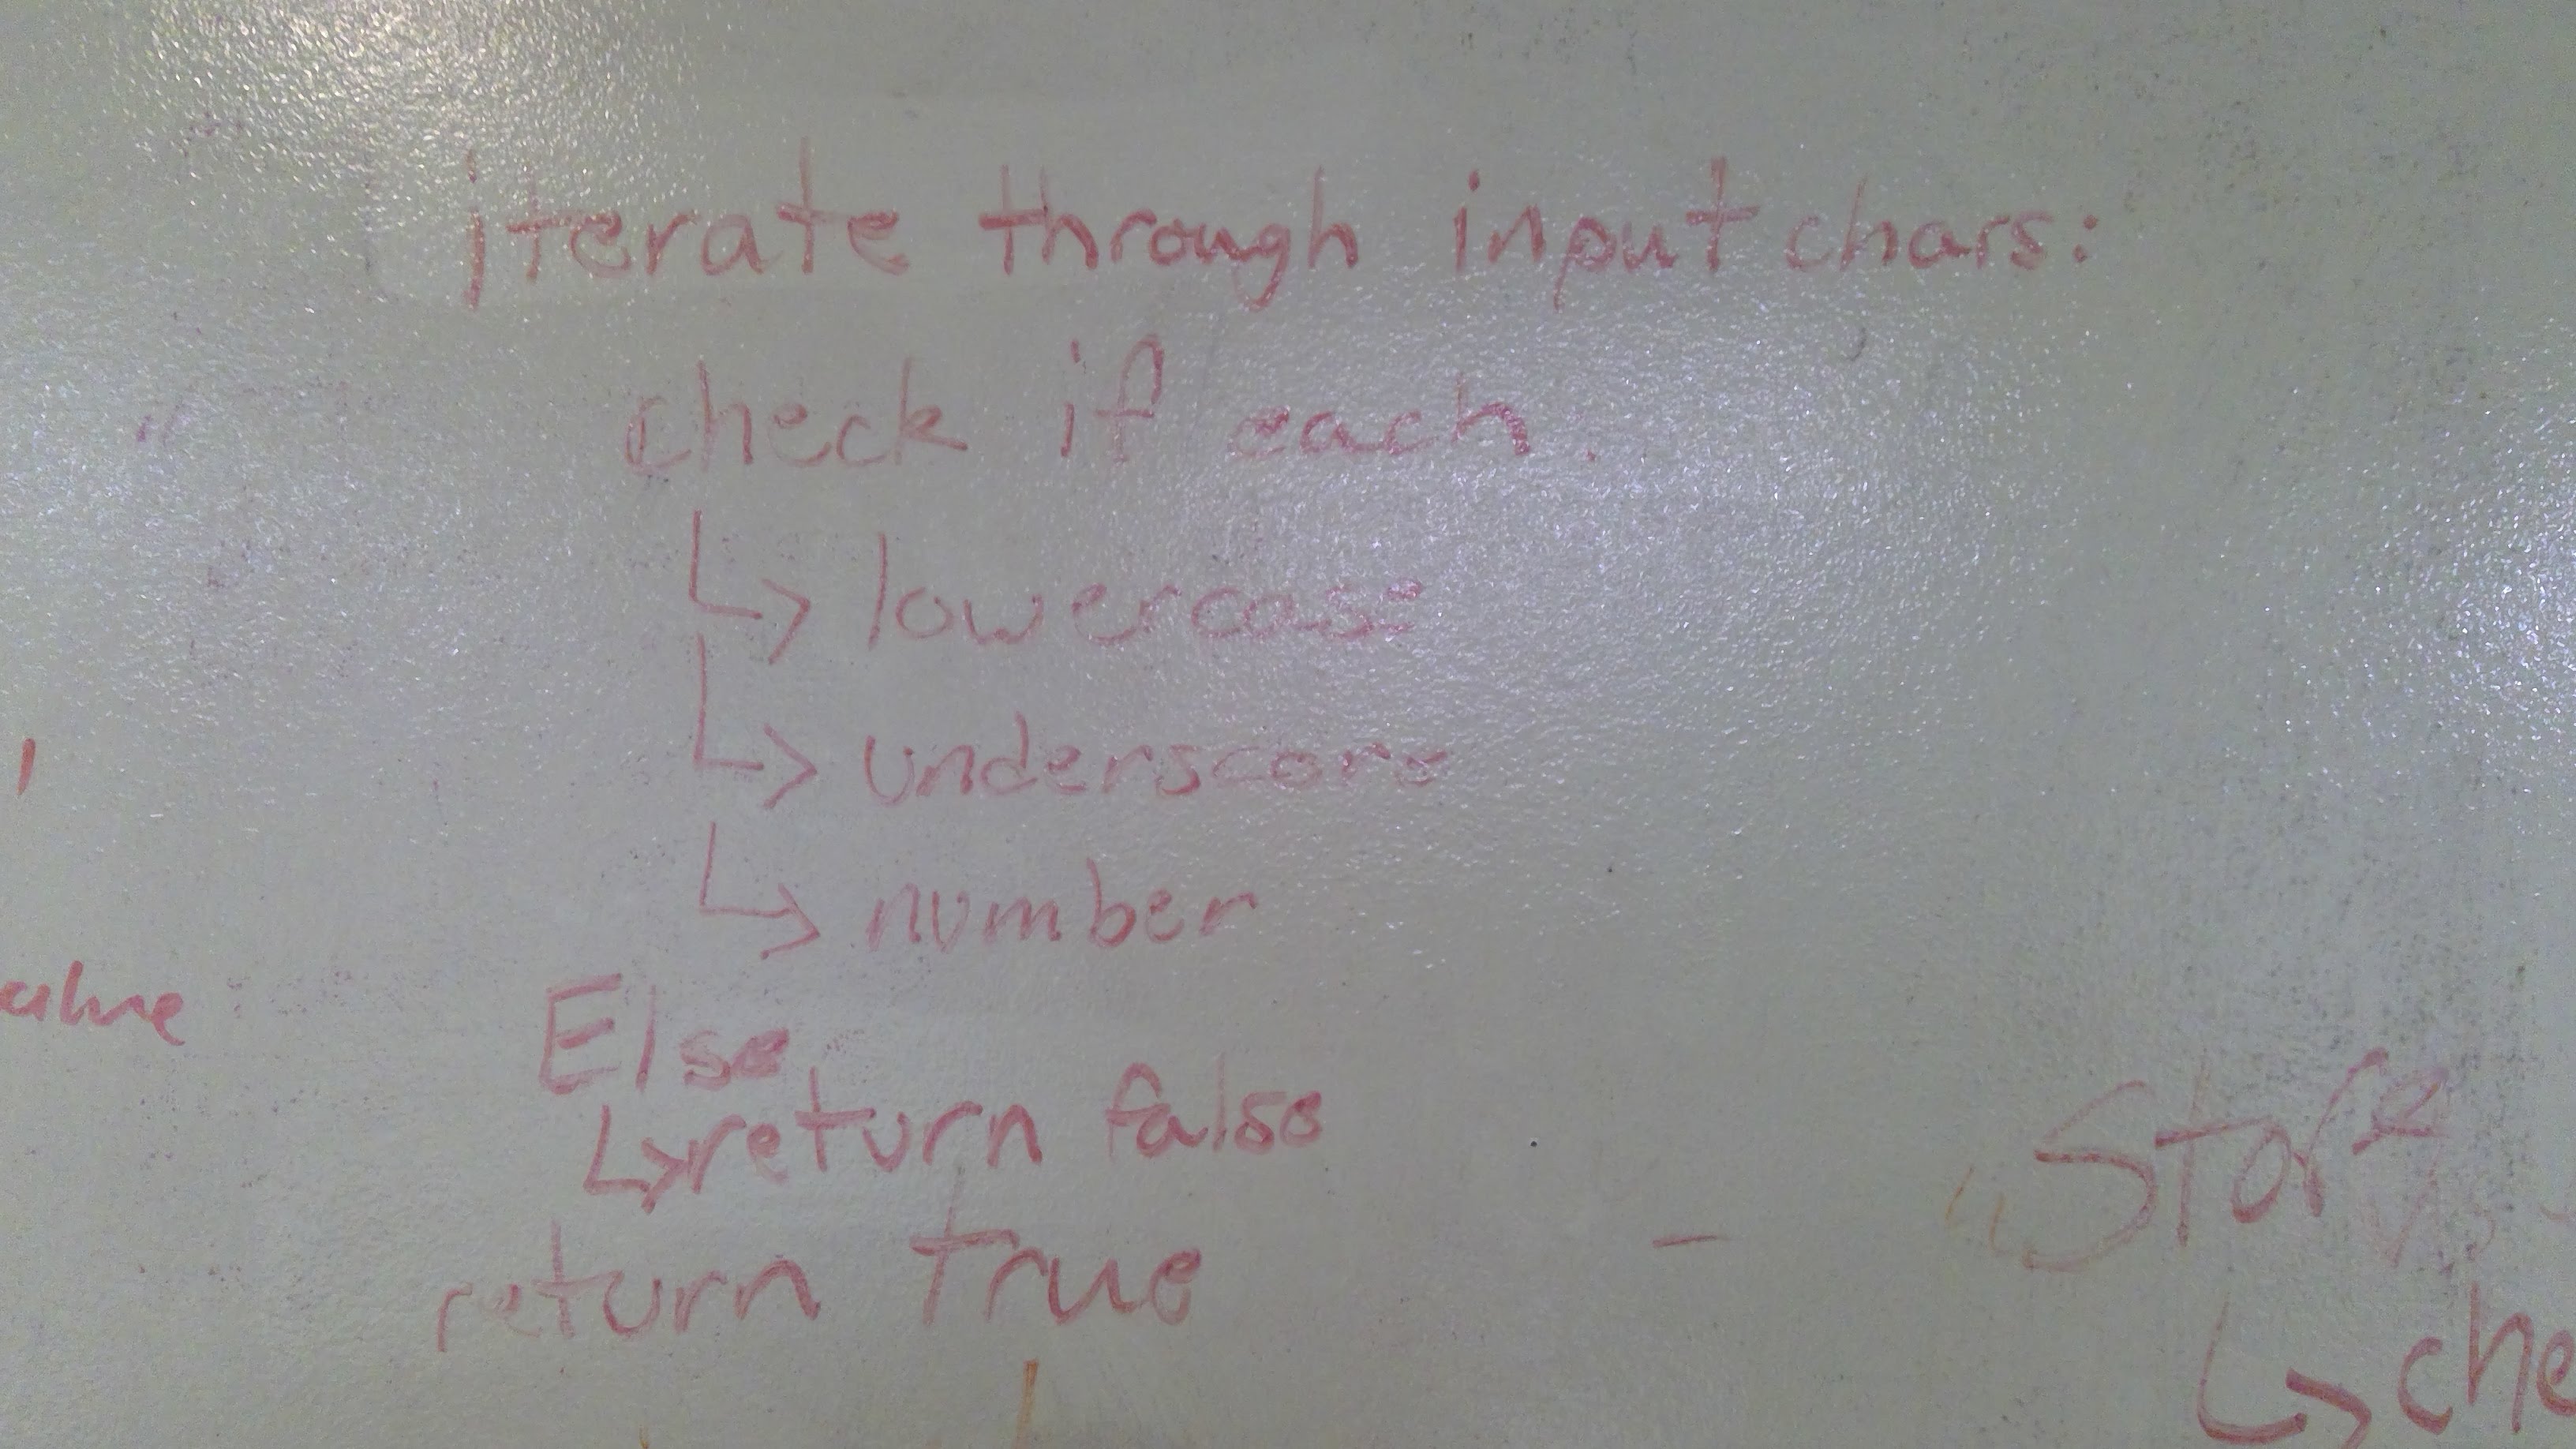 iterate through input chars:
check if each.
↳ lowercase
↳ underscore
↳ number
Else
↳ return false
return true
alue
- Store
↳ che